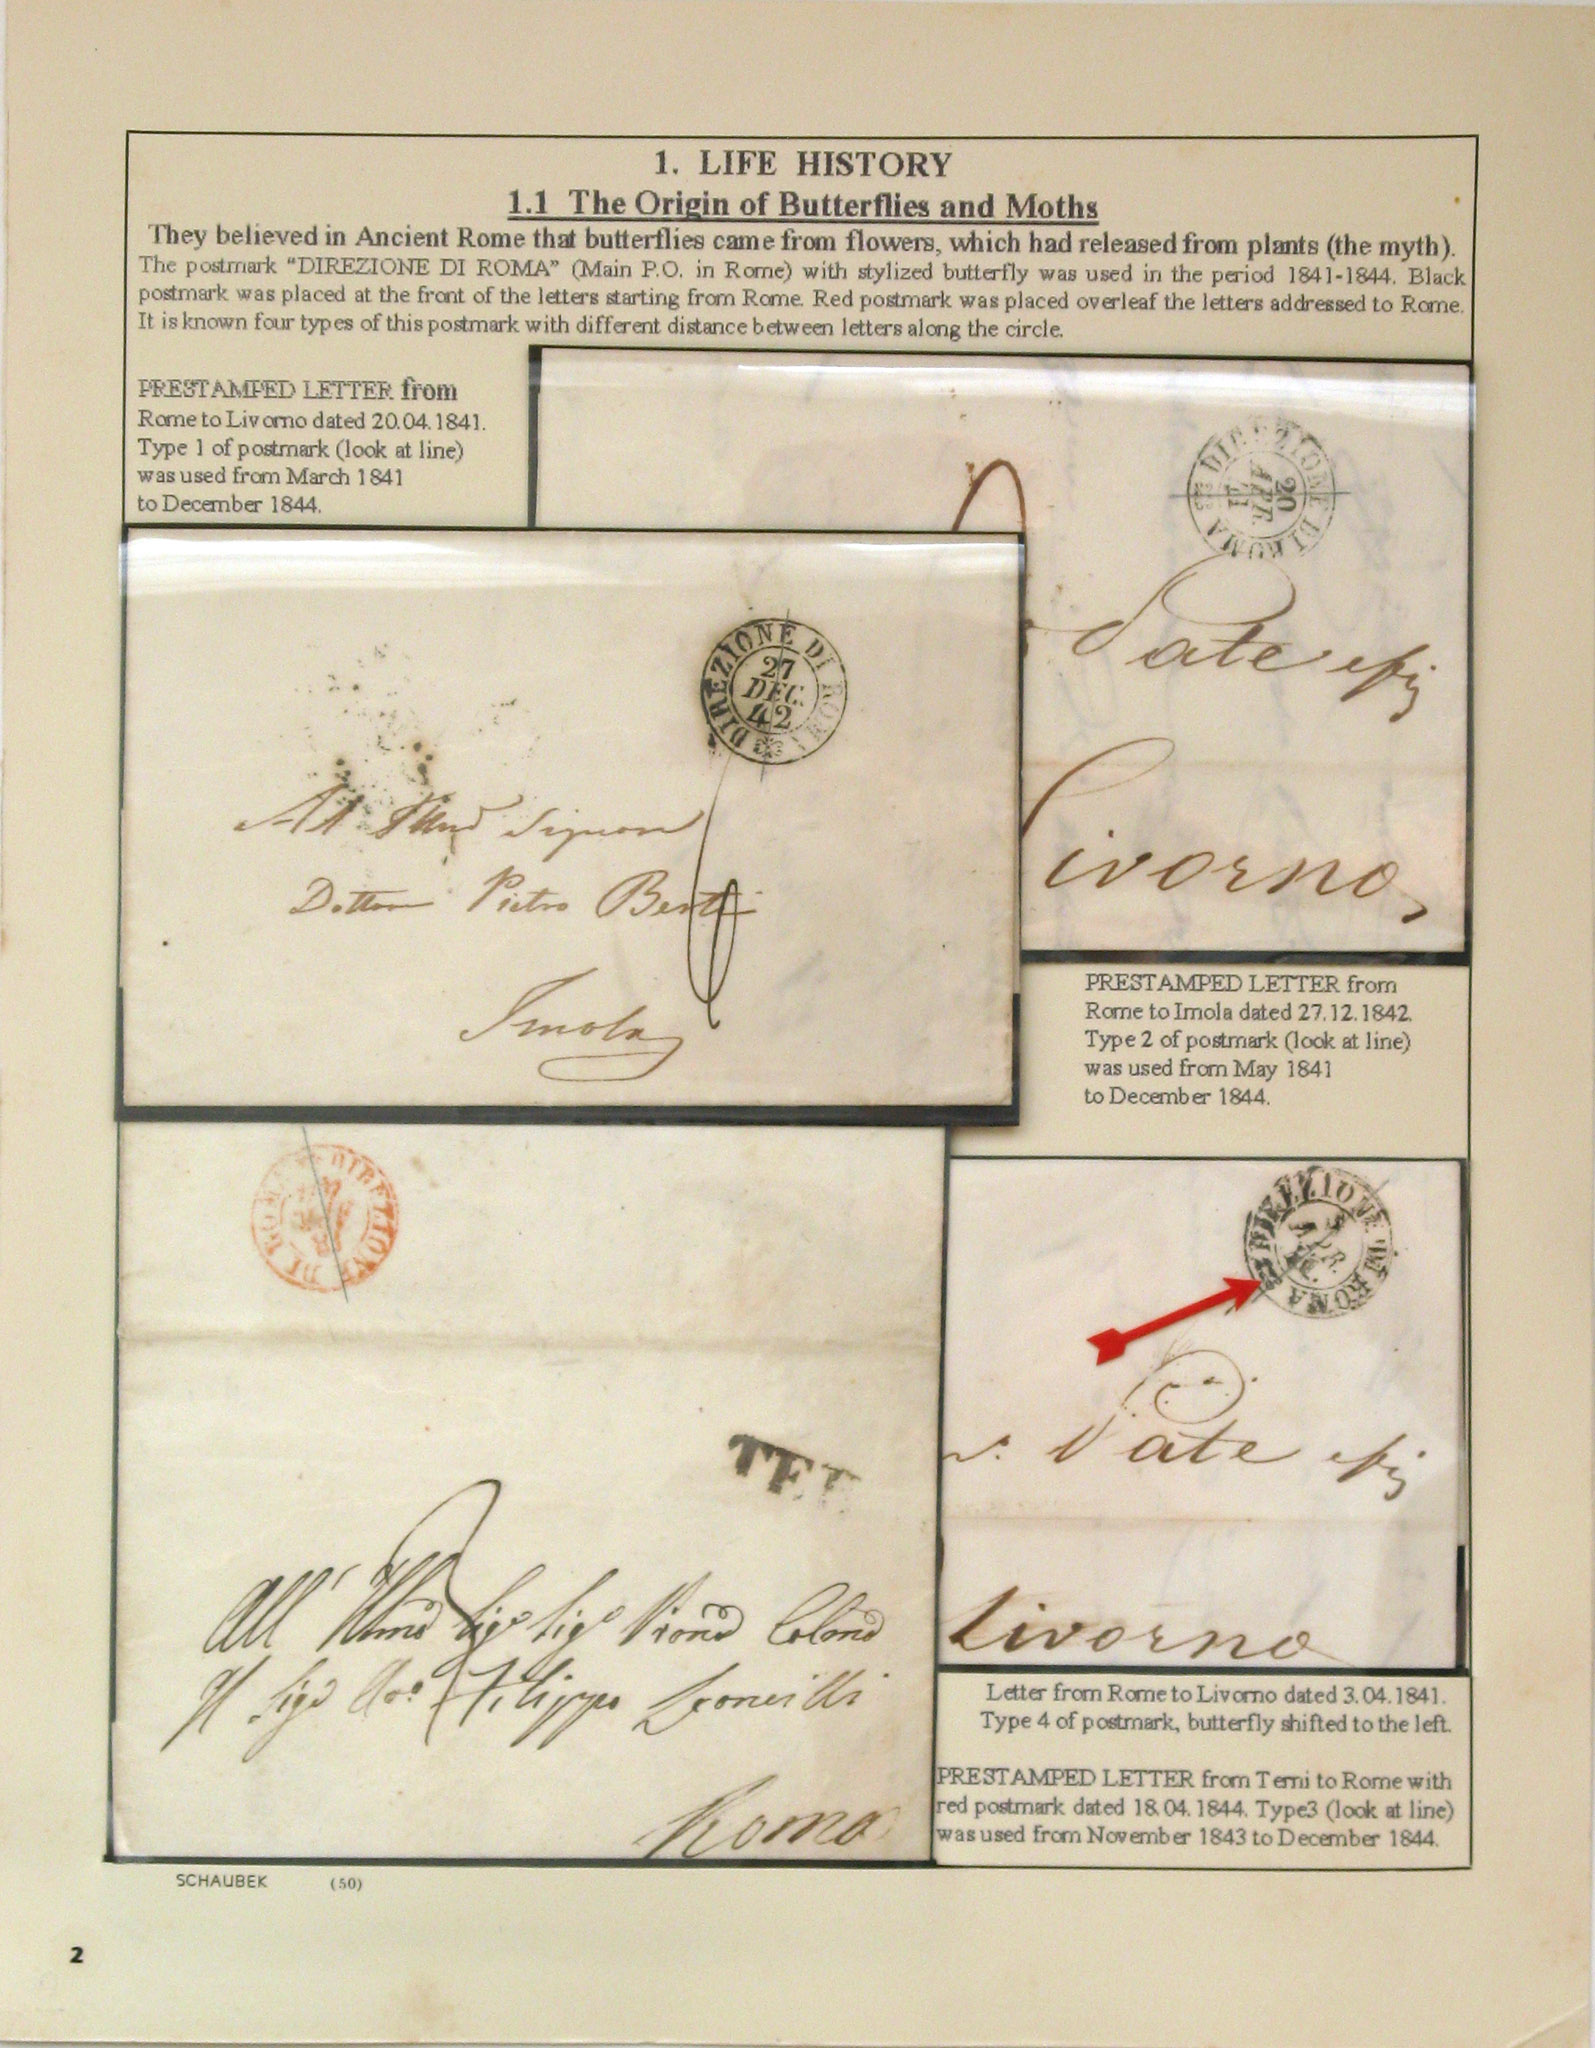 1. LIFE HISTORY
1.1 The Origin of Butterflies and Moths
They believed in Ancient Rome that butterflies came from flowers, which had released from plants (the myth).
The postmark "DIREZIONE DI ROMA" (Main P.O. in Rome) with stylized butterfly was used in the period 1841-1844. Black
postmark was placed at the front of the letters starting from Rome. Red postmark was placed overleaf the letters addressed to Rome.
It is known four types of this postmark with different distance between letters along the circle.
PRESTAMPED LETTER from
Rome to Livorno dated 20.04.1841.
Type 1 of postmark (look at line)
was used from March 1841
to December 1844.
DIREZIONE DI ROMA
20
APR
41
Livorno
DIREZIONE DI ROMA
27
DEC.
42
Signore
Pietro
Imola
PRESTAMPED LETTER from
Rome to Imola dated 27.12.1842.
Type 2 of postmark (look at line)
was used from May 1841
to December 1844.
DIREZIONE DI ROMA
DIREZIONE DI ROMA
Livorno
All'
Filippo
Roma
Letter from Rome to Livorno dated 3.04.1841.
Type 4 of postmark, butterfly shifted to the left.
PRESTAMPED LETTER from Terni to Rome with
red postmark dated 18.04.1844. Type3 (look at line)
was used from November 1843 to December 1844.
SCHAUBEK (50)
2